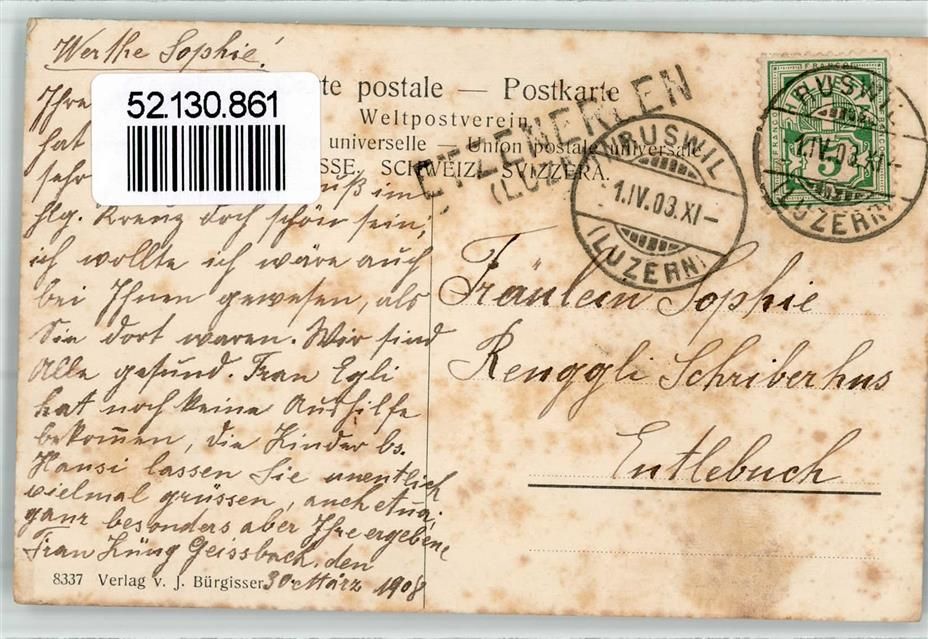 Werthe Sophie!
52.130.861
Ihre
hat
sehr
im
hlg. Kreuz doch schön sein,
ich wollte ich wäre auch
bei Ihnen gewesen, als
Sie dort waren. Wir sind
Alle gesund. Frau Egli
hat noch keine Aushilfe
bekommen, die Kinder bs.
Hansi lassen Sie unentlich
vielmal grüssen, auch
ganz besonders aber Ihre ergebene
Frau Küng Geissbach, den
30. März 1908
8337 Verlag v. J. Bürgisser
te postale — Postkarte
Weltpostverein
universelle — Union postale universale
SSE. SCHWEIZ. SVIZZERA.
RUSWIL
1.IV.08.XI–
(LUZERN)
RUSWIL
1.IV.08.XI–
(LUZERN)
FRANCO
5
Fräulein Sophie
Renggli Schriberhus
Entlebuch